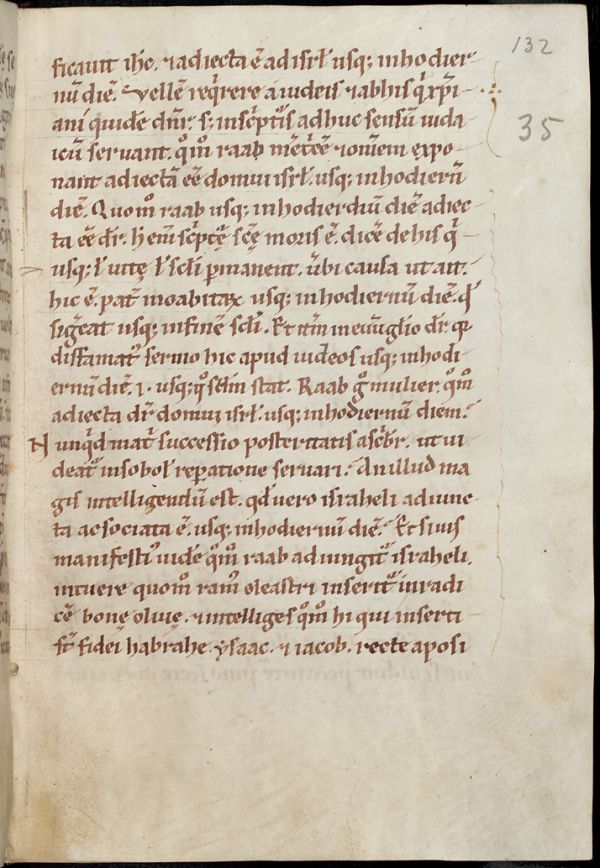 132
35
ficauit ihc̄. ⁊ adiecta ē ad isrł usq; in hodier
nū diē. Vellē reqͥrere a iudeis ⁊ ab his qͥ xp̄i
ani quidē dn̄r. s; in scͥptͥs adhuc sensū iuda
icū seruant. qͦm̄ raab
nant adiectā eē domui isrł. usq; in hodiernū
diē. Quom̄ raab usq; in hodiernū diē adiec
ta eē dr̄. moris ē. dicē de his qͥ
usq; permanent. ubi causa ut
hic ē. pat̄ moabitaꝝ usq; in hodiernū diē. qd̄
usq; in finē scłi. Et dr̄. qa
diffamatͬ sermo hic apud iudeos usq; in hodi
ernū diē. stat. Raab gͦ mulier. qͦm̄
adiecta dr̄ domui isrł. usq; in hodiernū diem.
Nunqͥd successio posteritatis ut ui
deatͬ in sobole reparatione seruari. An illud ma
gis intelligendū est. qd̄ uero israheli adiunc
ta ac sociata ē. usq; in hodiernū diē. Et si uis
manifestiꝰ uidē qͦm̄ raab adiungitͬ israheli.
intuere quom̄ ramꝰ oleastri inseritͬ in radi
cē bonę oliuę. ⁊ intelliges qͦm̄ hi qui inserti
st̄ fidei habrahe ysaac. ⁊ iacob. recte aposi